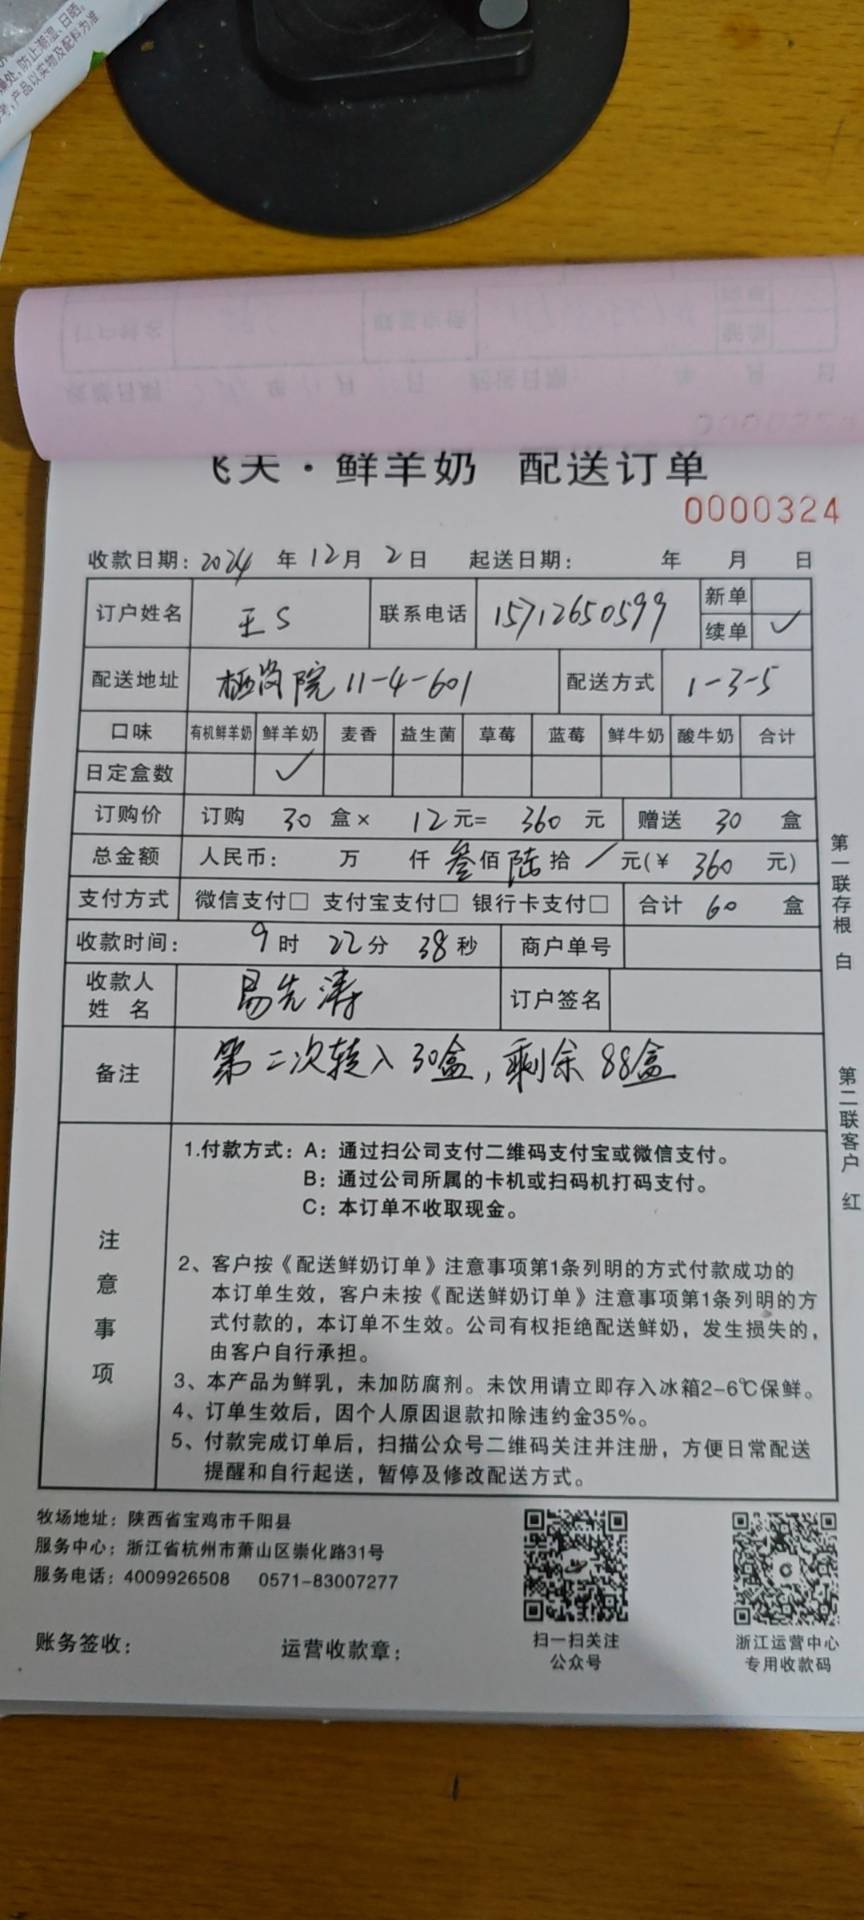 处，防止潮湿、日晒，
产品以实物及配料为准
飞天·鲜羊奶 配送订单
0000324
收款日期：2024 年 12月 2日 起送日期： 年 月 日
订户姓名 王S 联系电话 15712650599 新单
续单 ✓
配送地址 院 11-4-601 配送方式 1-3-5
口味 有机鲜羊奶 鲜羊奶 麦香 益生菌 草莓 蓝莓 鲜牛奶 酸牛奶 合计
日定盒数 ✓
订购价 订购 30 盒× 12元= 360 元 赠送 30 盒
总金额 人民币： 万 仟 叁佰 陆拾 / 元(￥ 360 元)
支付方式 微信支付□ 支付宝支付□ 银行卡支付□ 合计 60 盒
收款时间： 9时 22分 38秒 商户单号
收款人
姓 名 易先涛 订户签名
备注 第二次转入30盒，剩余88盒
注意事项
1.付款方式：A：通过扫公司支付二维码支付宝或微信支付。
B：通过公司所属的卡机或扫码机打码支付。
C：本订单不收取现金。
2、客户按《配送鲜奶订单》注意事项第1条列明的方式付款成功的
本订单生效，客户未按《配送鲜奶订单》注意事项第1条列明的方
式付款的，本订单不生效。公司有权拒绝配送鲜奶，发生损失的，
由客户自行承担。
3、本产品为鲜乳，未加防腐剂。未饮用请立即存入冰箱2-6℃保鲜。
4、订单生效后，因个人原因退款扣除违约金35%。
5、付款完成订单后，扫描公众号二维码关注并注册，方便日常配送
提醒和自行起送，暂停及修改配送方式。
第一联存根 白
第二联客户 红
牧场地址：陕西省宝鸡市千阳县
服务中心：浙江省杭州市萧山区崇化路31号
服务电话：4009926508 0571-83007277
扫一扫关注
公众号
浙江运营中心
专用收款码
账务签收： 运营收款章：